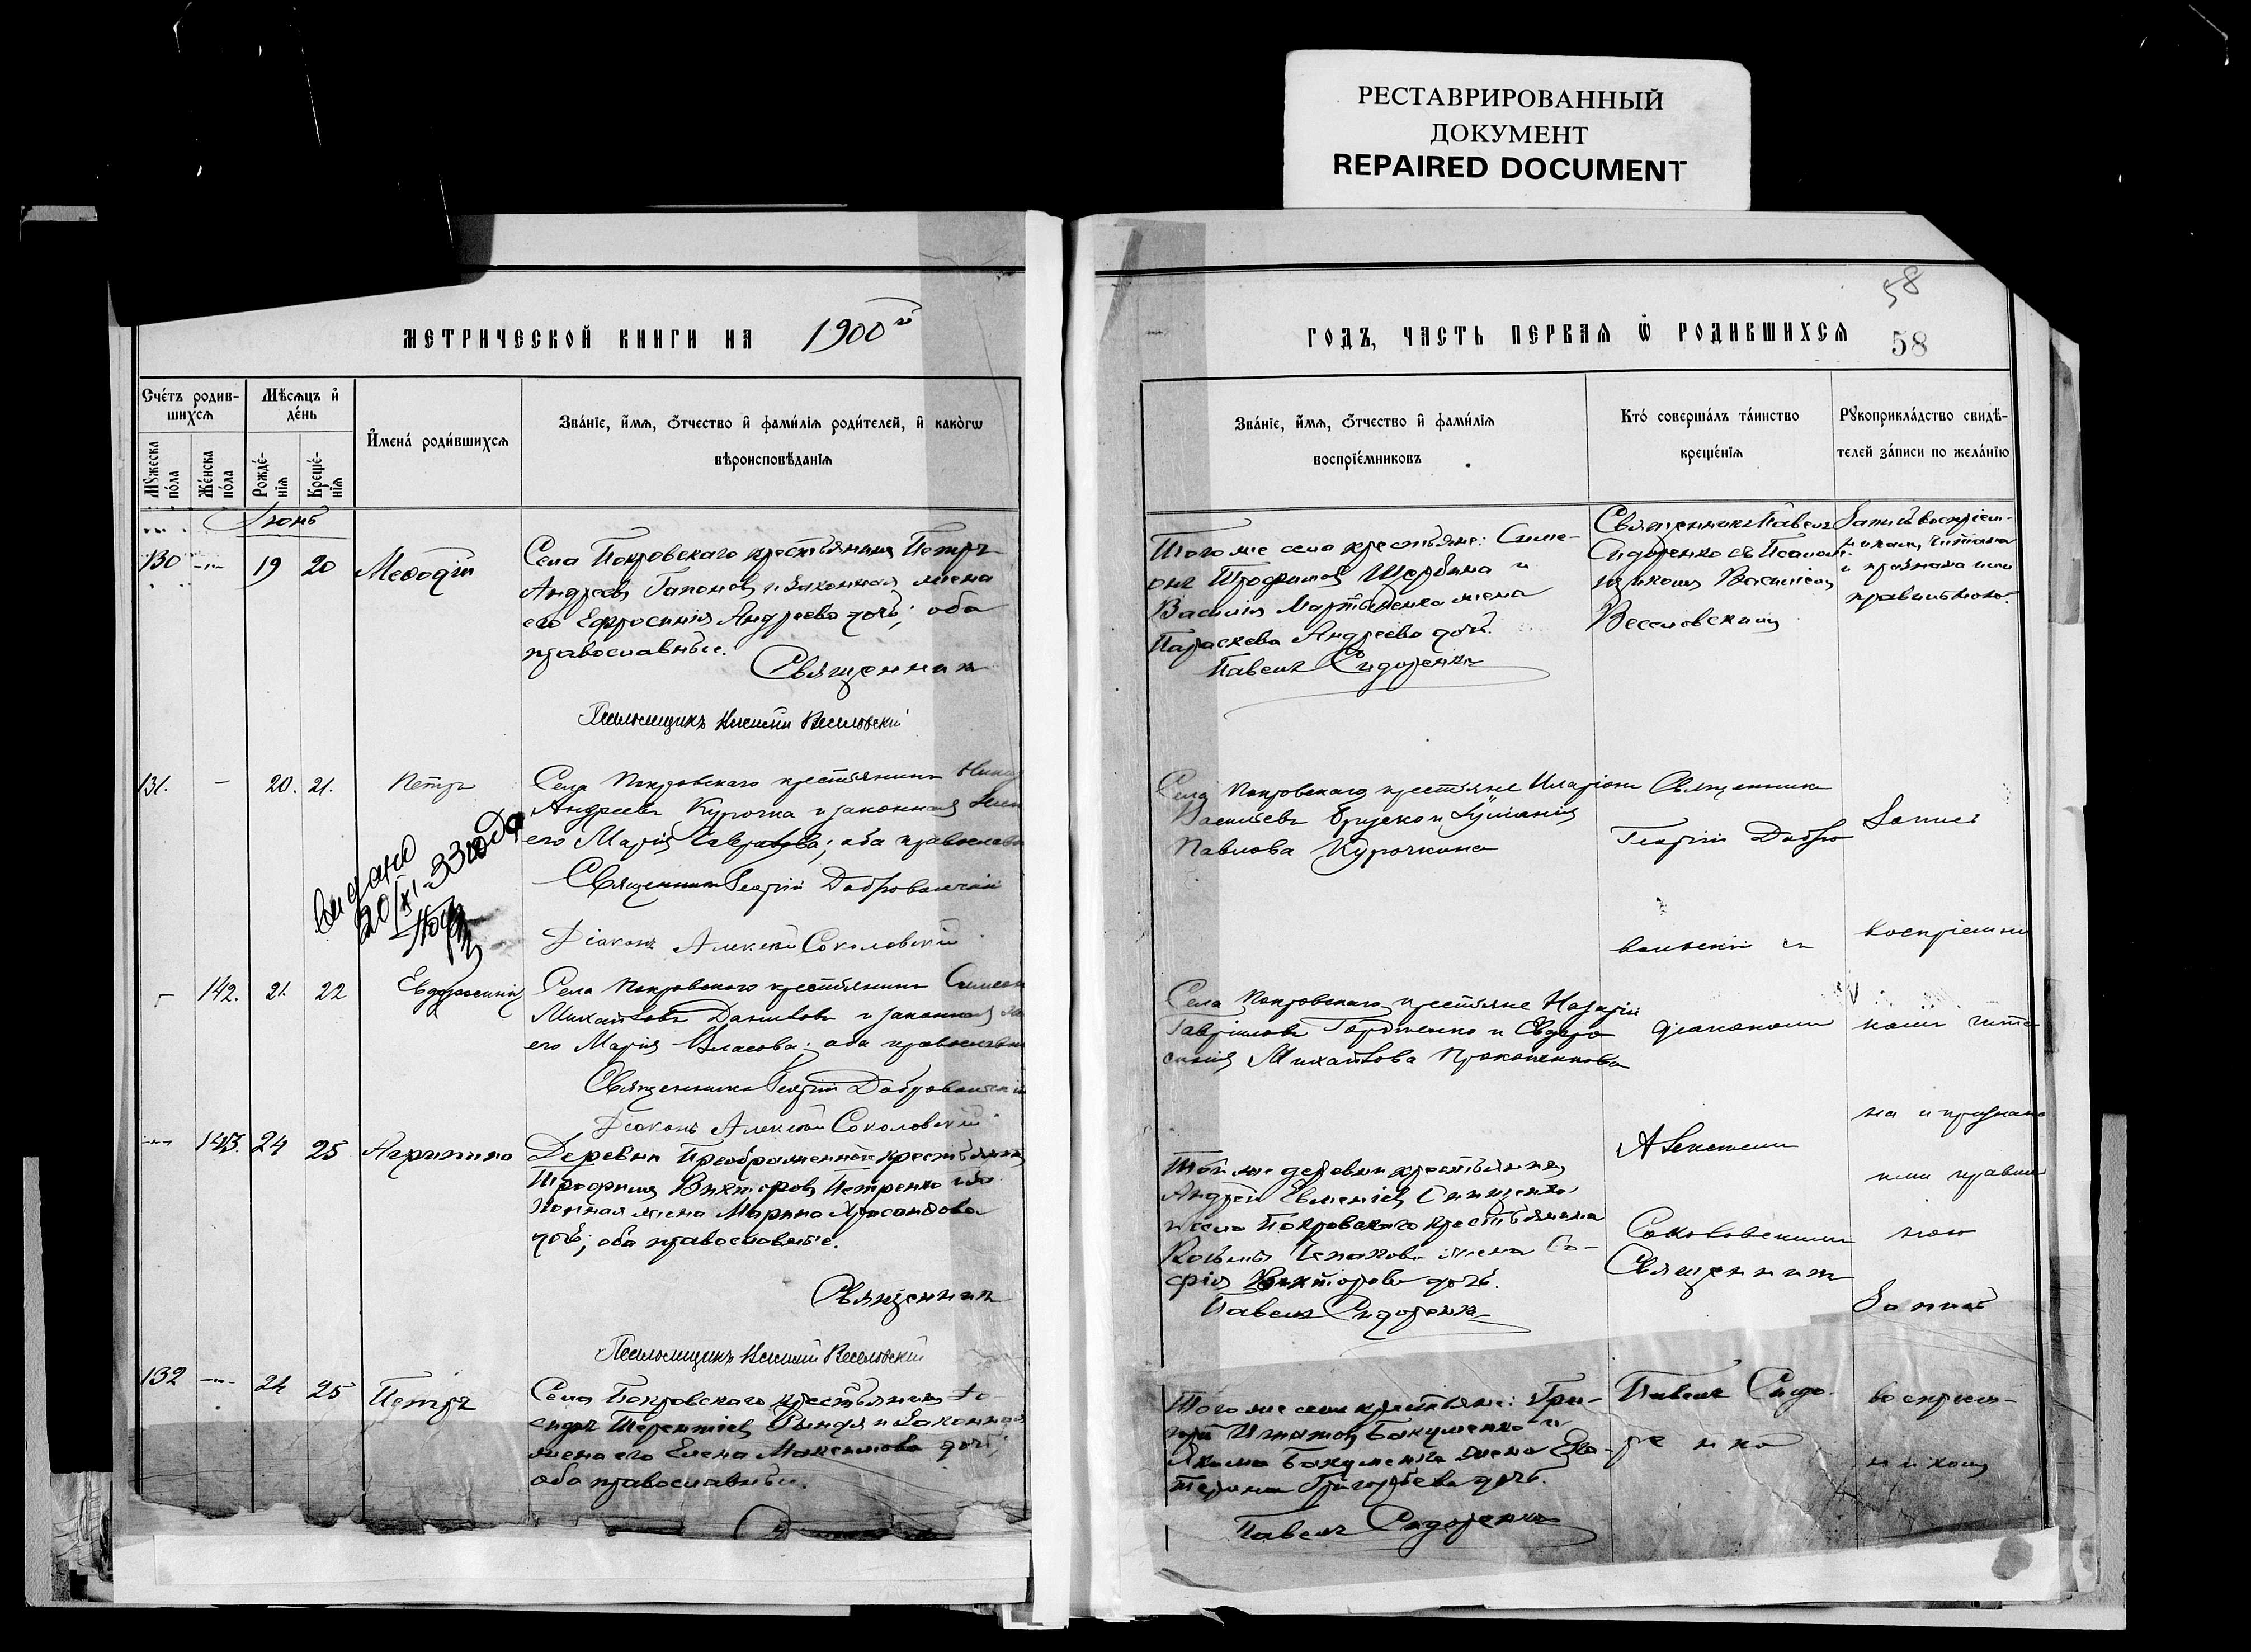 РЕСТАВРИРОВАННЫЙ
ДОКУМЕНТ
REPAIRED DOCUMENT
58
МЕТРИЧЕСКОЙ КНИГИ НА 1900й
ГОДЪ, ЧАСТЬ ПЕРВАЯ Ѿ РОДИВШИХСЯ 58
Счетъ родив-
шихся
Мужеска пола
Женска пола
Мѣсяцъ и
день
Рожде-
нія
Креще-
нія
Имена родившихся
Званіе, имя, отчество и фамилія родителей, и какогѡ
вѣроисповѣданія
Званіе, имя, отчество и фамилія
воспріемниковъ
Кто совершалъ таинство
крещенія
Рукоприкладство свидѣ-
телей записи по желанію
Іюнь
130 19 20 Меѳодій
Села Покровскаго крестьянинъ Петръ
Андреевъ Гапоновъ и законная жена
его Ефросинія Андреева дочь; оба
православные.
Священникъ
Псаломщикъ Василій Веселовскій
Того же села крестьяне: Симе-
онъ Трофимовъ Щербина и
Василія Мартыненка жена
Параскева Андреева дочь.
Павелъ Сидоренко
Священникъ Павелъ
Сидоренко съ Псалом-
щикомъ Василіемъ
Веселовскимъ
Запись воспріем-
никами читана
и признана ими
правильною.
131. - 20. 21. Петръ
Села Покровскаго крестьянинъ
Андреевъ Курочка и законная
его Марія; оба
Священникъ Георгій Добровольскій
Діаконъ Алексѣй Соколовскій
выдано
20/XI-33 года
Села Покровскаго крестьяне Иларіонъ
Васильевъ и Іуліанія
Павлова Курочкина
Священникъ
Георгій Добро
вольскій съ
Запись
воспріемни
- 142. 21. 22 Евфросинія
Села Покровскаго крестьянинъ Симеон
Михайловъ Даниловъ и законная
его Марія Власова; оба
Священникъ Георгій Добровольскій
Діаконъ Алексѣй Соколовскій
Села Покровскаго крестьяне Назарій
Гавриловъ Гордіенко и Евфро
синія Михайлова Прокопенкова
діакономъ
Алексѣемъ
Соколовскимъ
ками чита
на и признана
ими правиль
ною
143. 24 25 Агрипина
Деревни Преображенной крестьянинъ
Трофимъ Викторовъ Петренко и за-
конная жена Марина Хрисанѳова
дочь; оба православные.
Священникъ
Псаломщикъ Василій Веселовскій
Той же деревни крестьянинъ
Андрей Евменіевъ
и села Покровскаго крестьянина
Козьмы жена Со-
фія Викторова дочь.
Павелъ Сидоренко
Священникъ
Запись
132 24 25 Петръ
Села Покровскаго крестьянинъ
Терентіевъ и законная
жена его Елена Максимова дочь;
оба православные.
Того же села крестьяне: Гри-
горій Игнатовъ Бакуменко и
Якима Бакуменка жена Ека-
терина Григорьева дочь.
Павелъ Сидоренко
Павелъ Сидо-
ренко
воспріем-
никами